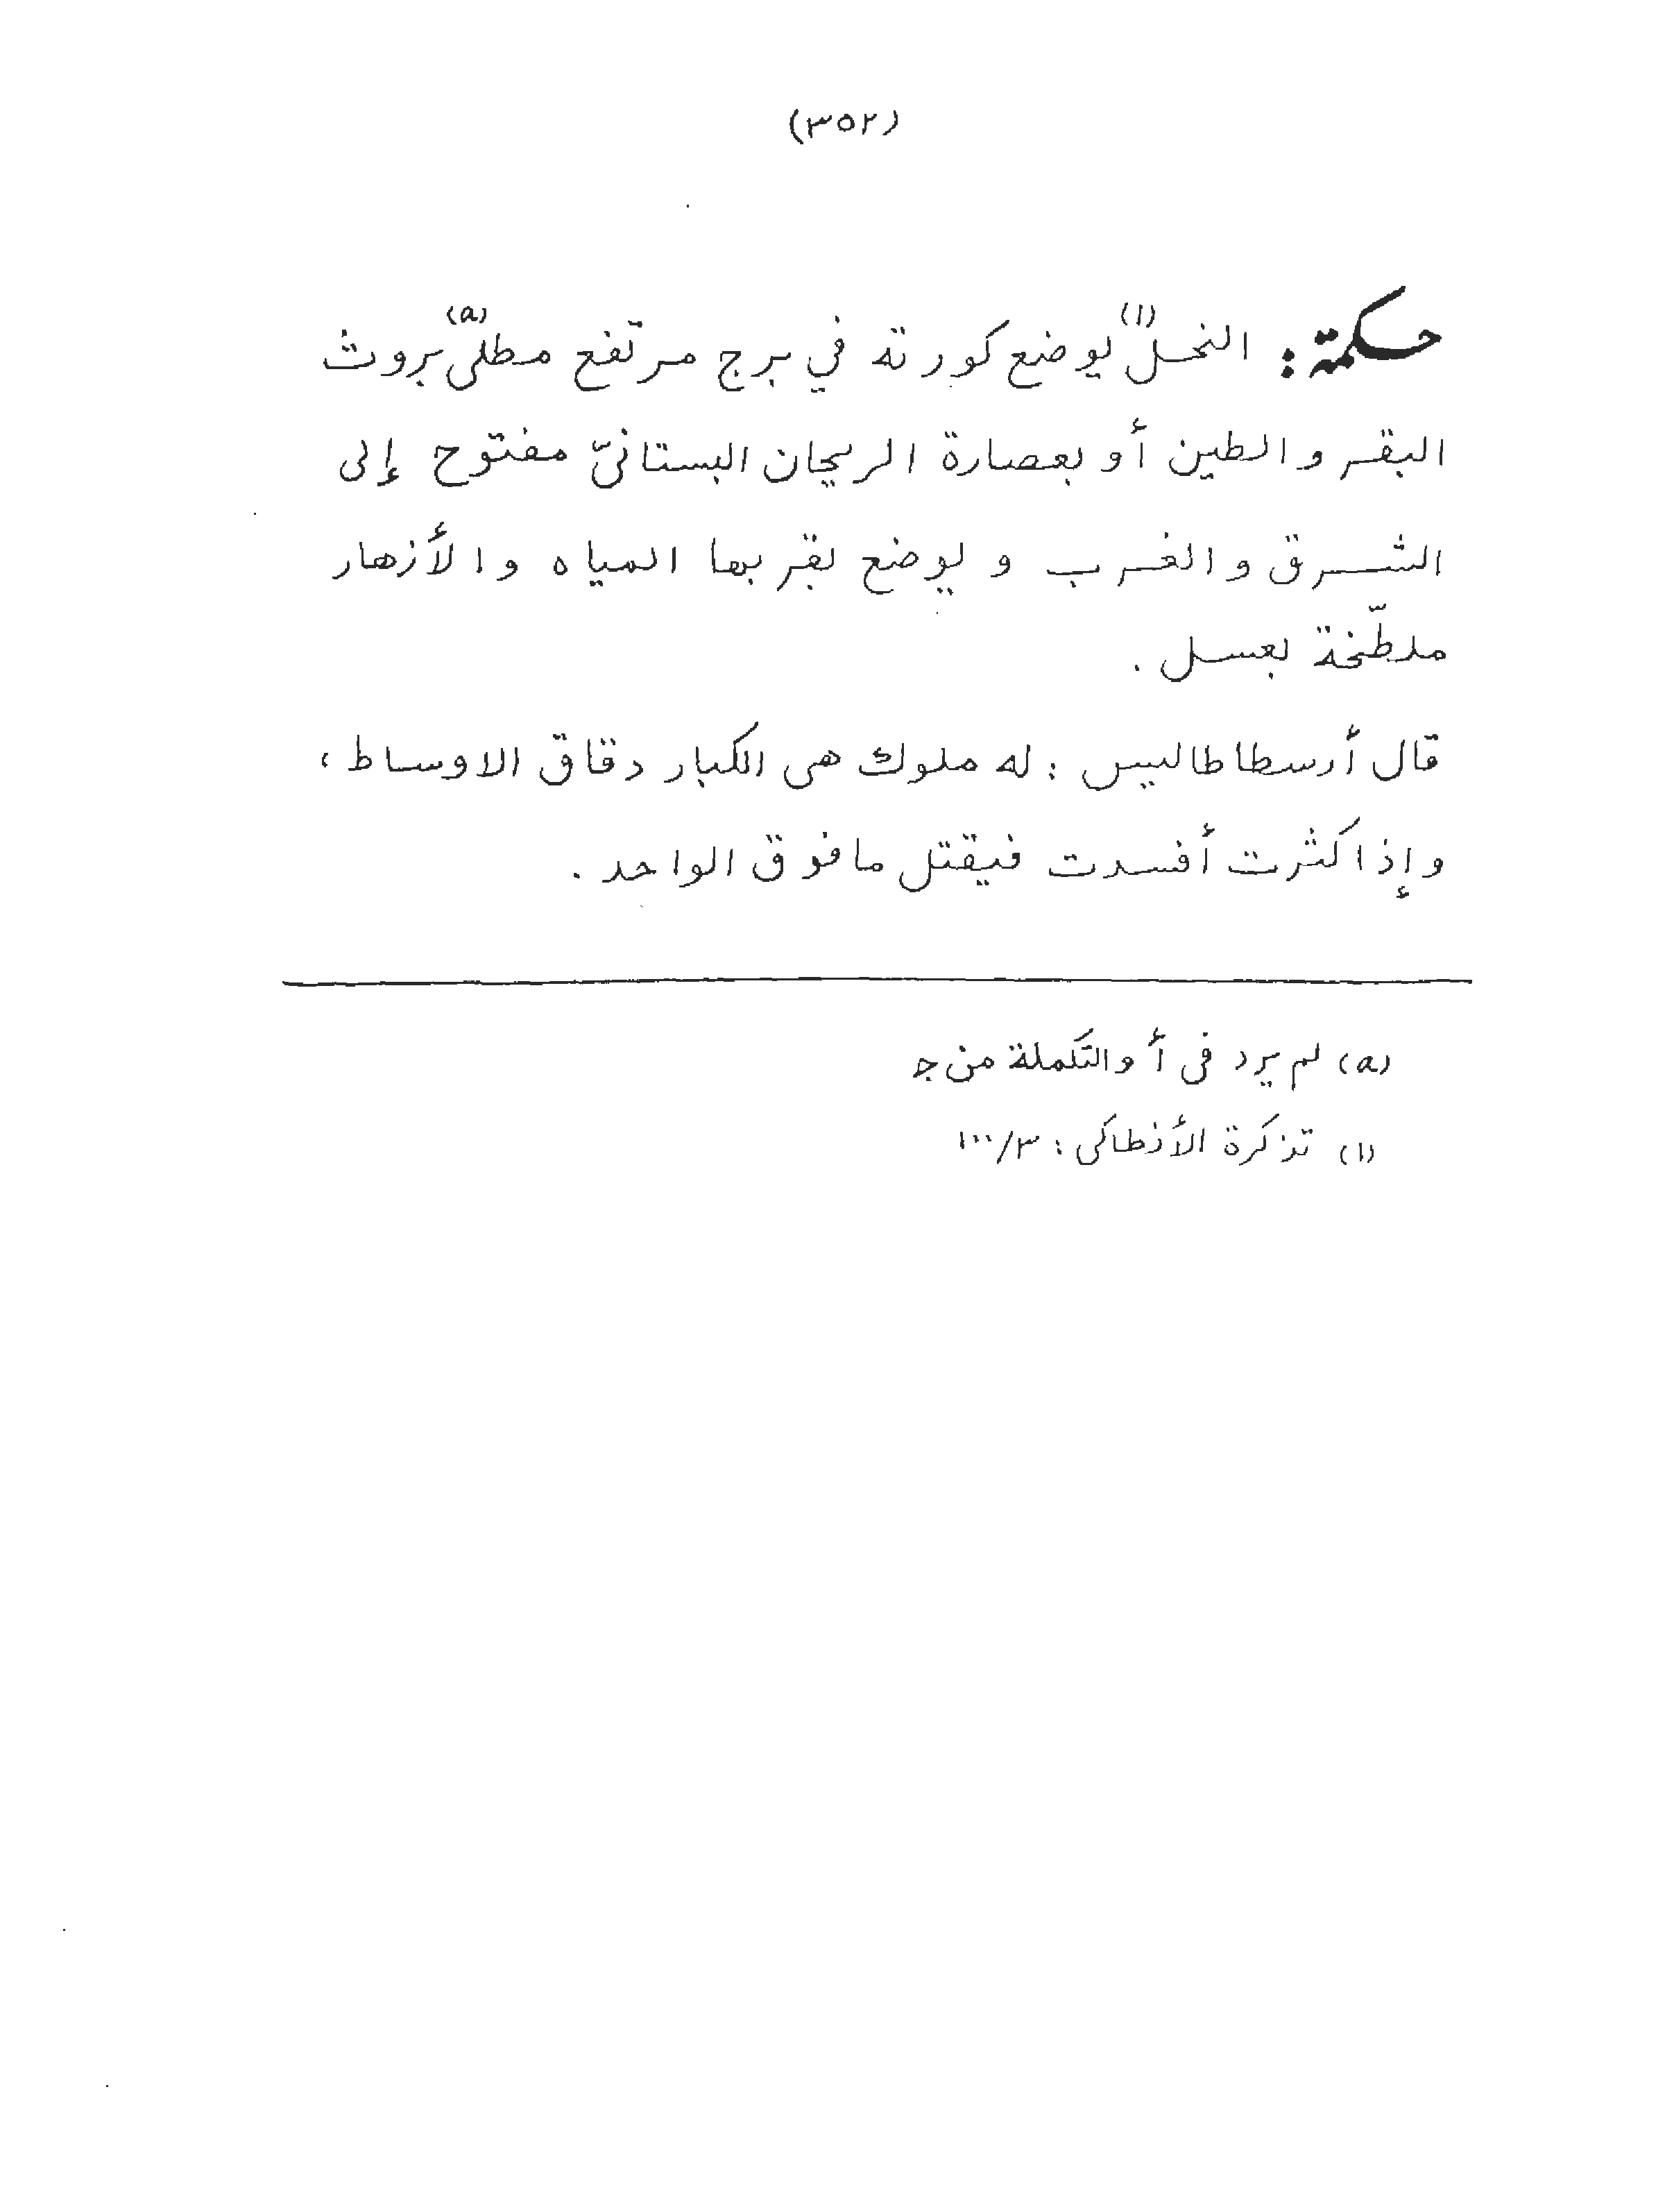 (٣٥٢)
حكمة : النحل(١) يوضع كورته في برج مرتفع مطليّ(a) بروث
البقر والطين أو بعصارة الريحان البستانيّ مفتوح إلى
الشرق والغرب و يوضع بقربها المياه والأزهار
ملطّخة بعسل .
قال أرسطاطاليس : له ملوك هى الكبار دقاق الاوساط ،
وإذا كثرت أفسدت فيقتل ما فوق الواحد .
(a) لم يرد فى أ والتكملة من جـ
(١) تذكرة الأنطاكى : ٣/١٠٠